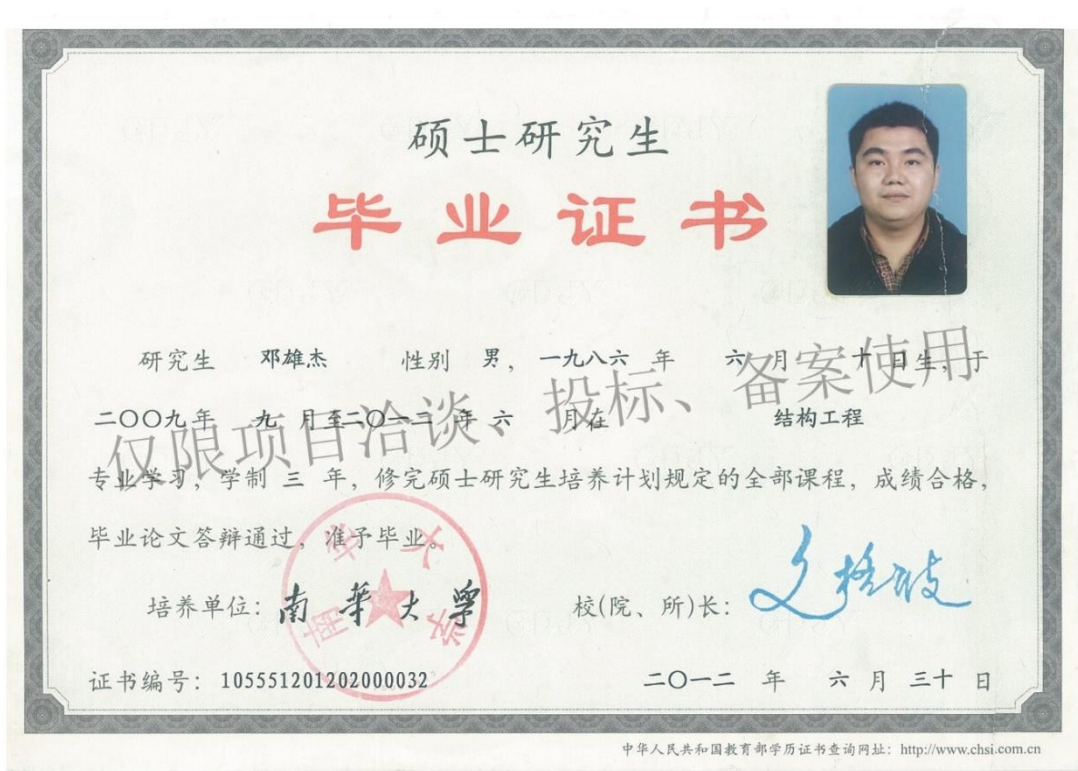 硕士研究生
毕业证书
研究生 邓雄杰 性别 男，一九八六 年 六 月 十 日生，于
二〇〇九年 九 月至二〇一二 年 六 月在 结构工程
专业学习，学制 三 年，修完硕士研究生培养计划规定的全部课程，成绩合格，
毕业论文答辩通过，准予毕业。
培养单位：南華大學 校(院、所)长：
南华大学
证书编号：105551201202000032 二〇一二 年 六 月 三十 日
中华人民共和国教育部学历证书查询网址：http://www.chsi.com.cn
仅限项目洽谈、投标、备案使用